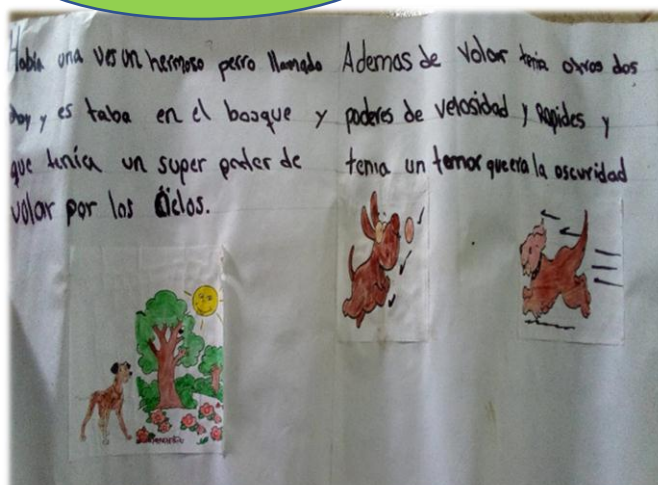 Había una ves un hermoso perro llamado
y es taba en el bosque y
que tenía un super poder de
volar por los Cielos.
Ademas de Volar tenia otros dos
poderes de velosidad y Rapides y
tenia un temor que era la oscuridad